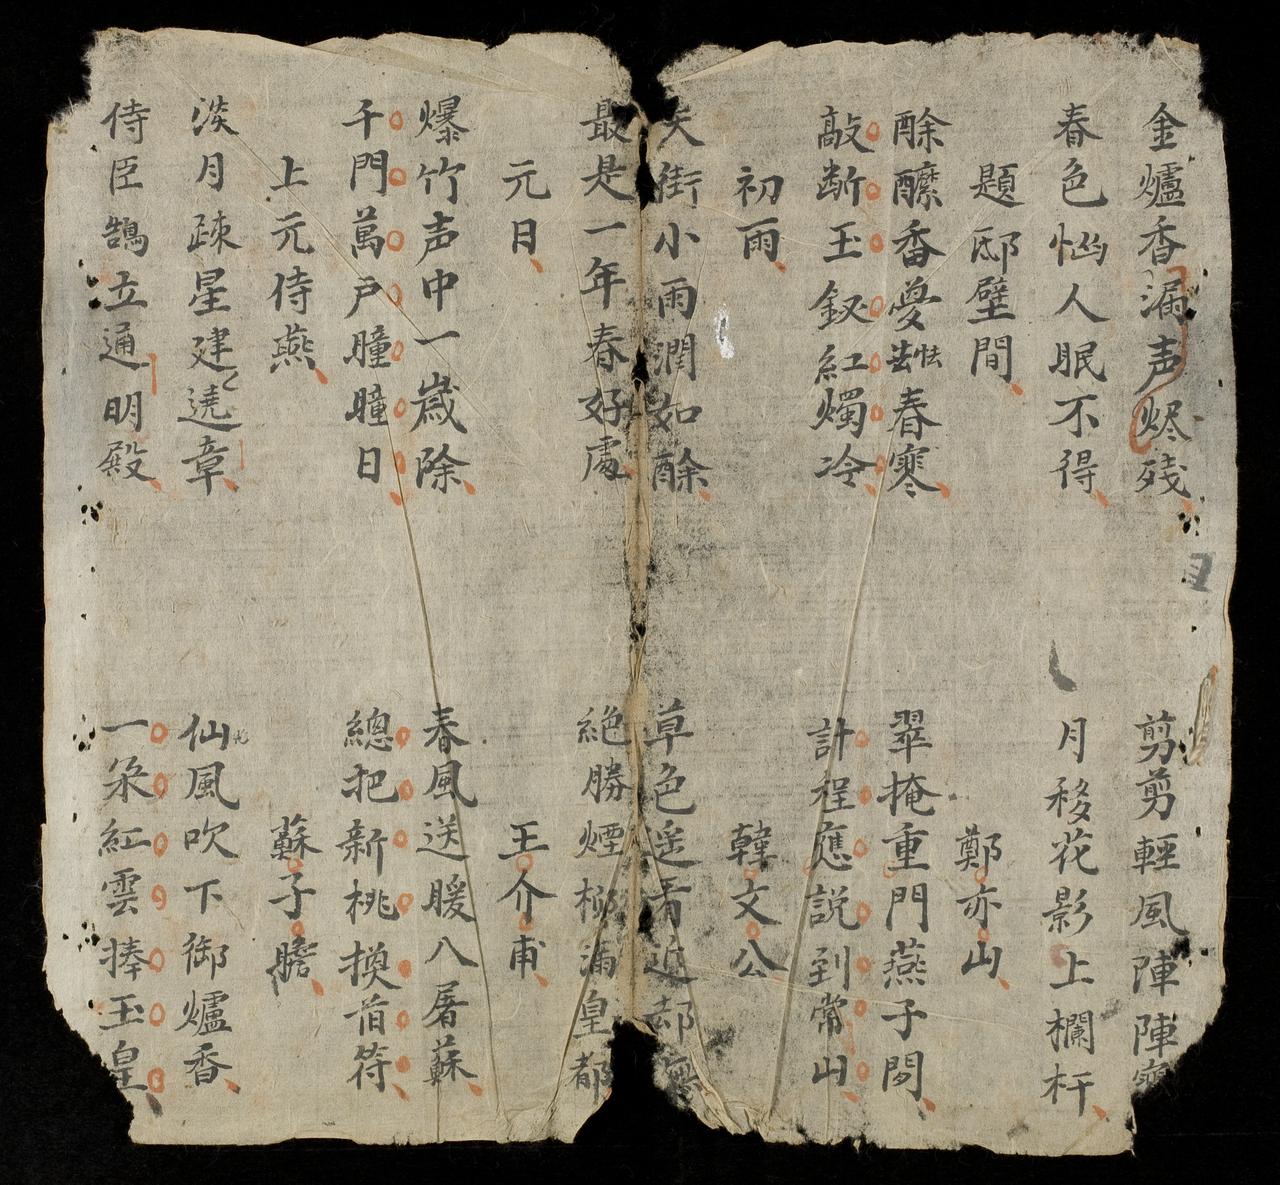 金爐香漏声烬残
剪剪輕風陣陣寒
春色恼人眠不得
月移花影上欄杆
題邸壁間
鄭亦山
酴醾香夢怯春寒
翠掩重門燕子閑
敲断玉釵紅燭冷
計程應説到常山
初雨
韓文公
天街小雨潤如酥
草色遥看近却無
最是一年春好處
絶勝煙柳滿皇都
元日
王介甫
爆竹声中一歳除
春風送暖入屠蘇
千門萬户瞳瞳日
總把新桃換旧符
上元侍燕
蘇子瞻
淡月疎星建遶章
仙風吹下御爐香
侍臣鵠立通明殿
一朵紅雲捧玉皇